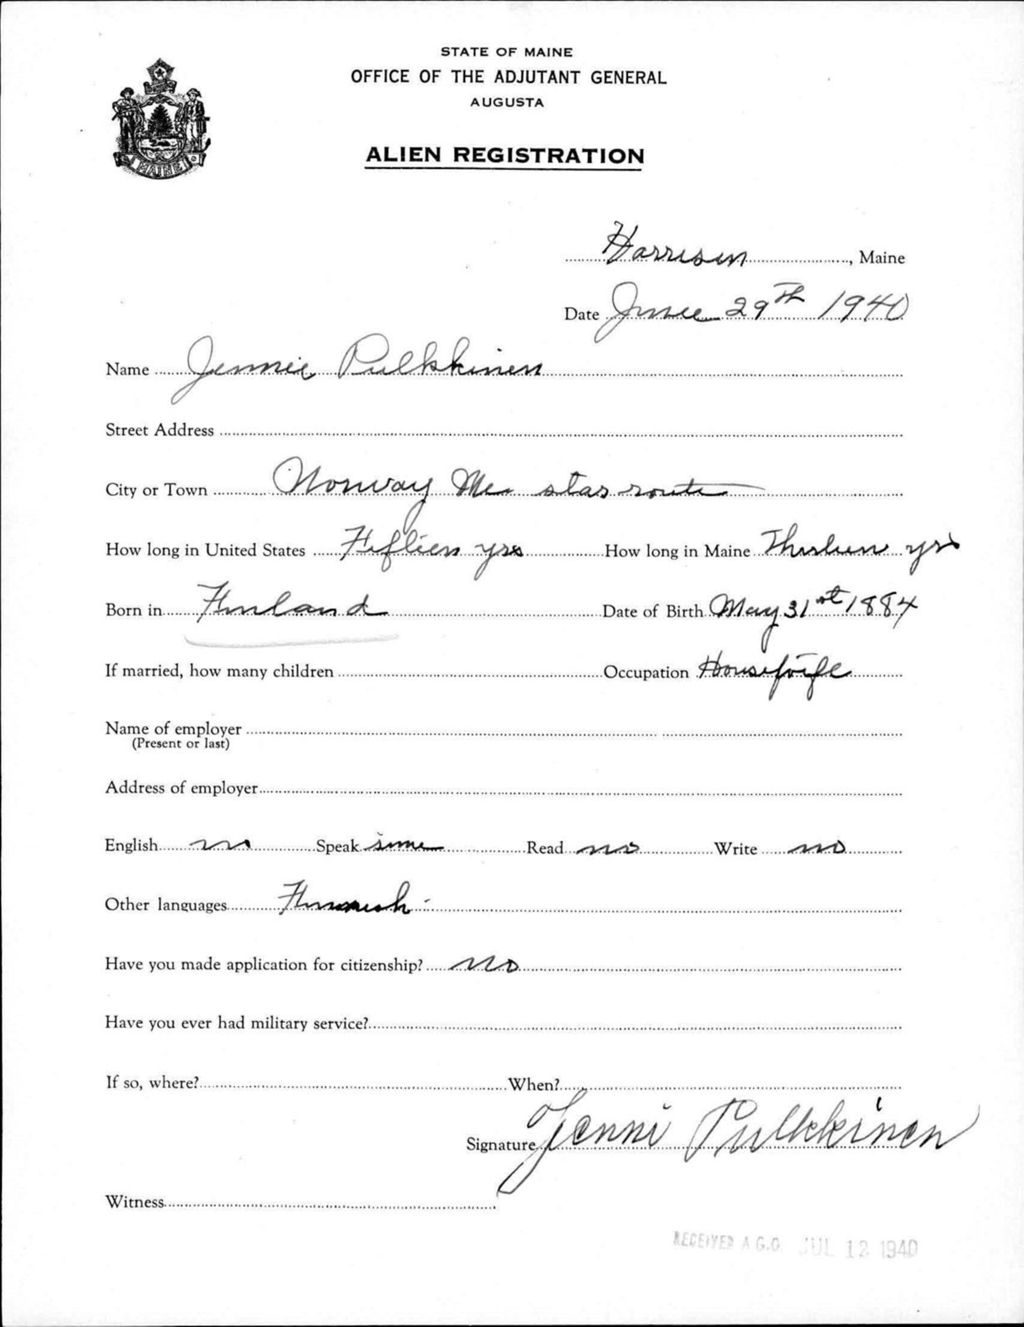 STATE OF MAINE
OFFICE OF THE ADJUTANT GENERAL
AUGUSTA
ALIEN REGISTRATION
MAINE
Harrison, Maine
Date June 29th 1940
Name Jennie Pulkkinen
Street Address
City or Town Norway Me star route
How long in United States Fiftien yrs How long in Maine Thirteen yrs
Born in Finland Date of Birth May 31st 1884
If married, how many children Occupation Housewife
Name of employer
(Present or last)
Address of employer
English no Speak some Read no Write no
Other languages Finnish
Have you made application for citizenship? no
Have you ever had military service?
If so, where? When?
Signature Jenni Pulkkinen
Witness
RECEIVED A.G.O. JUL 12 1940